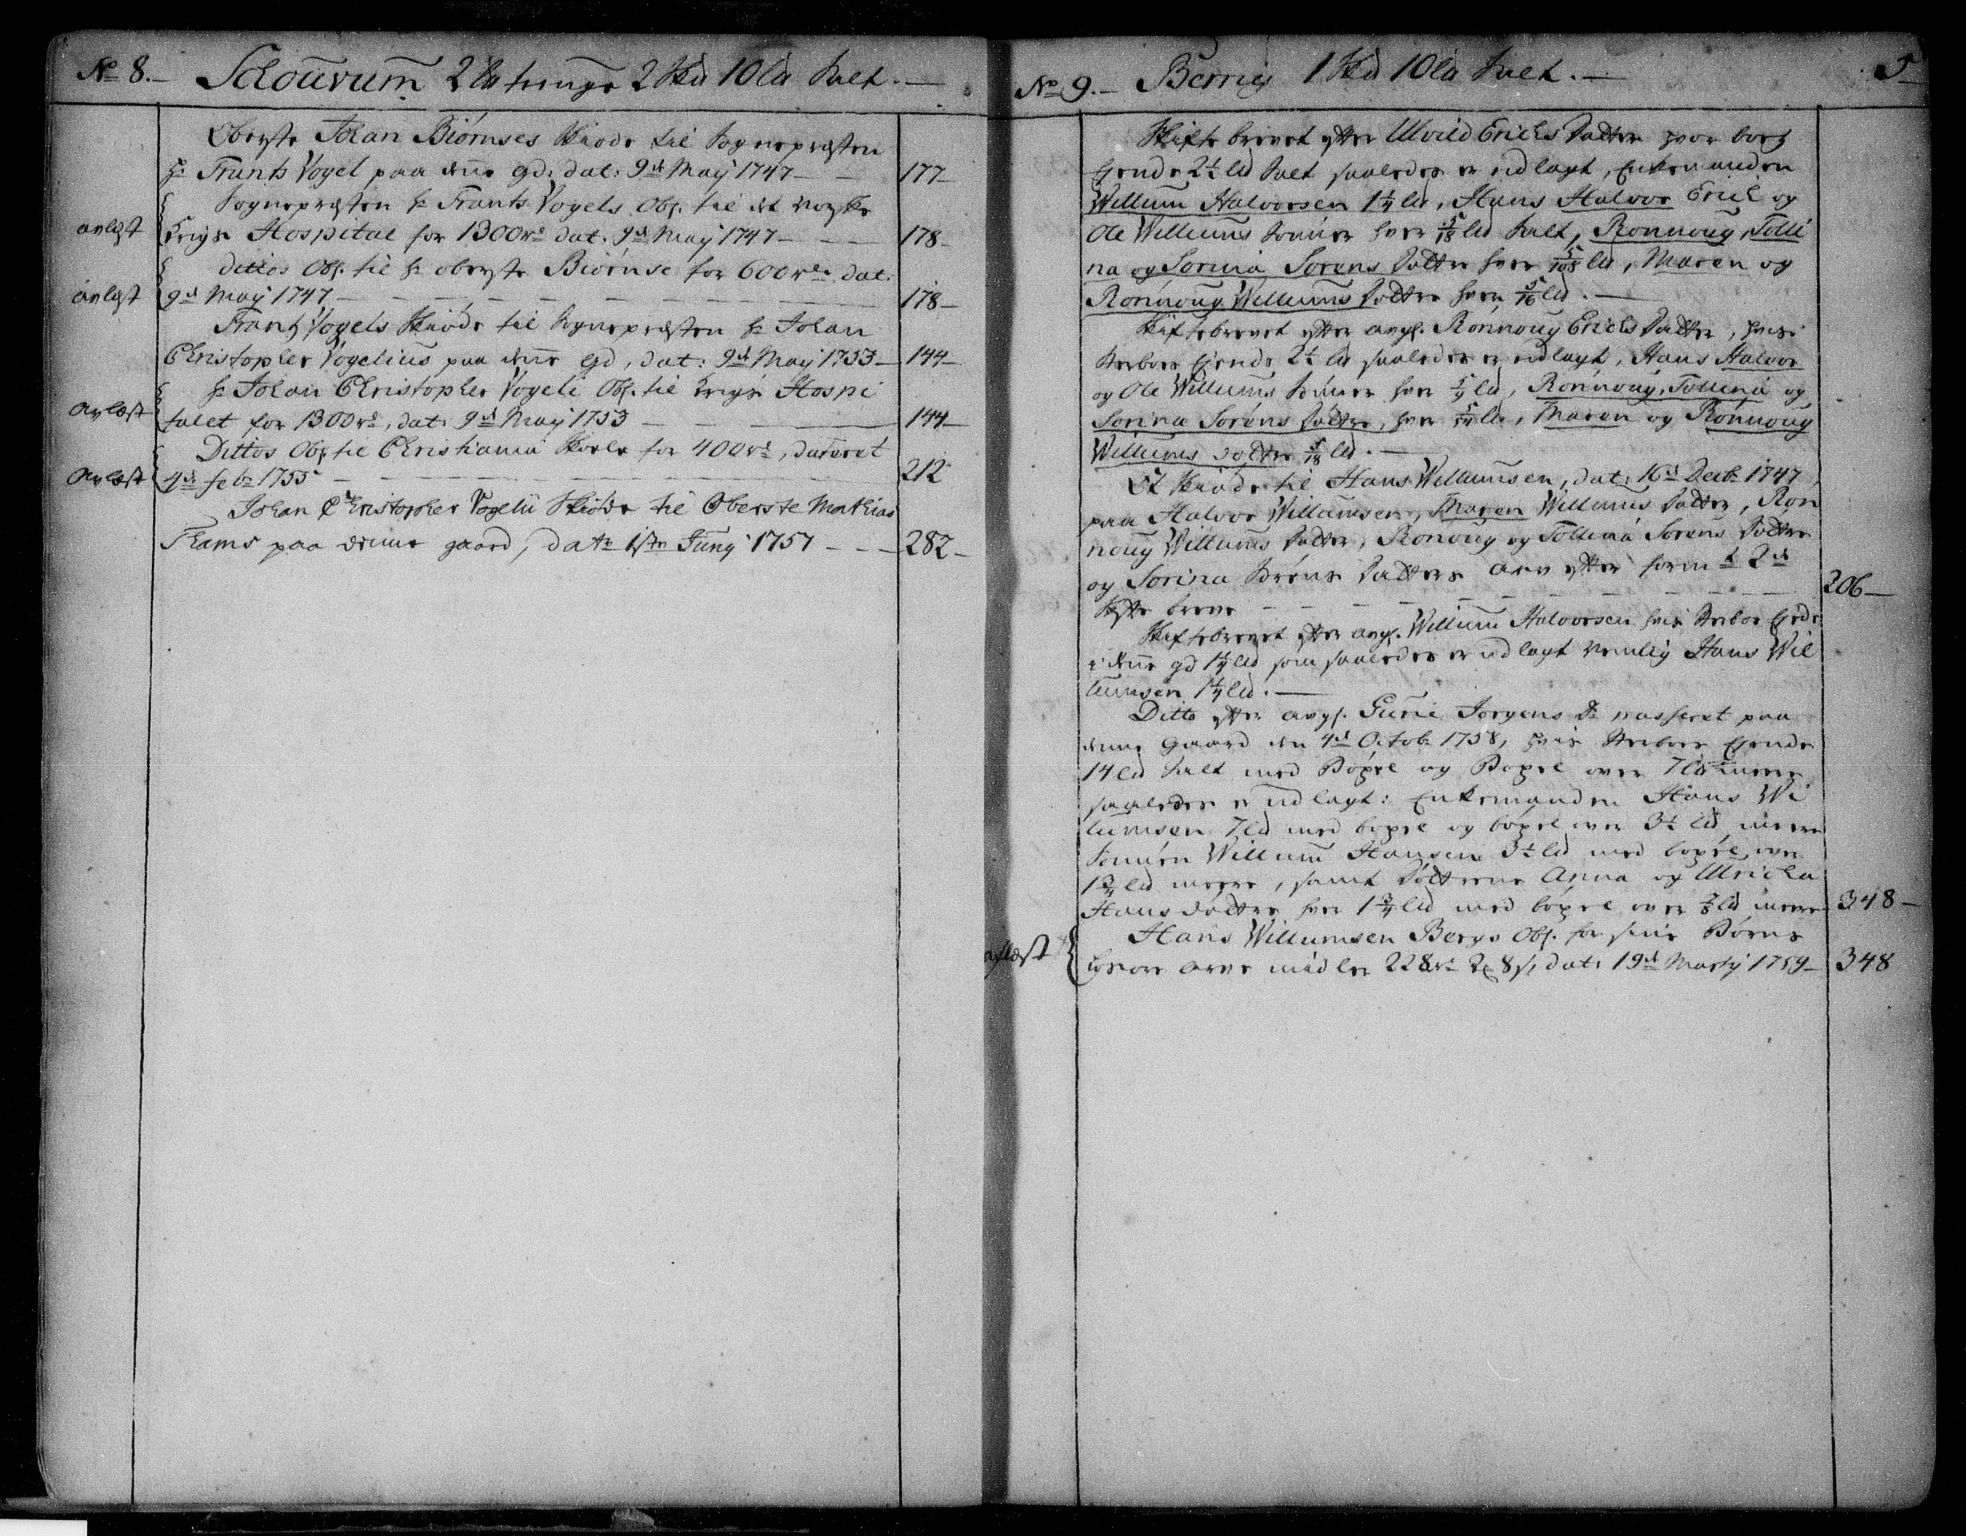 No 8. Schouvum 2 2 Hd 10 Ld Salt.
Oberste Johan Biørnses Skiøde til Sognepræsten
Hr Frants Vogel paa denne gd: dat: 9d May 1747 177
Sognepræsten Hr Frants Vogels Obl. til det norske
avlest Krigs Hospital for 1300 rd dat: 9d May 1747 178
dittos Obl. til Hr oberste Biørnse for 600 rd dat:
avlest 9d May 1747 178
Frantz Vogels Skiøde til Sognepræsten Hr Johan
Christopher Vogelius paa denne gd, dat: 9d May 1753 144
Hr Johan Christopher Vogeli Obl. til Krigs Hospi
avlæst talet for 1300 rd, dat: 9d May 1753 144
Dittos Obl til Christiania Skole for 400 rd, dateret
Avlæst 4d febr 1755 212
Johan Christopher Vogelii Skiøde til Oberste Mathias
Frams paa denne gaard, datr 1ste Juny 1757 282
No 9. Berrig 1 Hd 10 Ld Salt. 5
Skifte brevet efter Ulvild Erichs datter hvor boet
Ejende 2½ ld Salt saaledes er udlagt, Enkemanden
Willum Halvorsen 1¼ ld, Hans Halvor Erich og
Ole Willums Sønner hver 5/18 ld Salt, Ronnoug, Tolli
na og Sorina Sørens datter hver 5/108 ld, Maren og
Ronnoug Willums datter hver ld.
Skiftebrevet efter avgl. Ronnoug Erichs datter, hvis
Sterboe Ejende 2½ ld saaledes er udlagt, Hans Halvor
og Ole Willums Sønner hver ld, Ronnoug, Tollina og
Sorina Sørens datter, hver ld, Maren og Ronnoug
Willums datter 5/18 ld.
Et Skiøde til Hans Willumsen, dat: 16d Decbr 1747
paa Halvor Willumsen, Maren Willums datter, Ron
noug Willums datter, Ronoug og Tollina Sørens datter
og Sorina Sørens datters arv efter formt 2de
Skifte breve 206
Skiftebrevet efter avgl. Willum Halvorsen hvis Sterboe Ejede
i denne gd 1¼ ld som saaledes er udlagt nemlig Hans Wil
lumsen 1¼ ld.
Ditto efter avgl. Gurie Jørgens Dr passeret paa
denne gaard den 4d Octobr 1758, hvis Sterboe Ejende
14 ld Salt med Bøxel og Boxel over 7 ld meere
saaledes er udlagt: Enkemanden Hans Wi
lumsen 7 ld med boxel og boxel over 3½ ld meere
Sønnen Willum Hansen 3½ ld med boxel over
1¾ ld meere, samt døttrene Anna og Ulricha
Hans døttre hver 1¾ ld med boxel over 7/8 ld meere 348
Hans Willumsen Bergs Obl. for sine Børns
aflæst arve midler 228 rd 2 8 s, dat: 19d Marty 1759 348